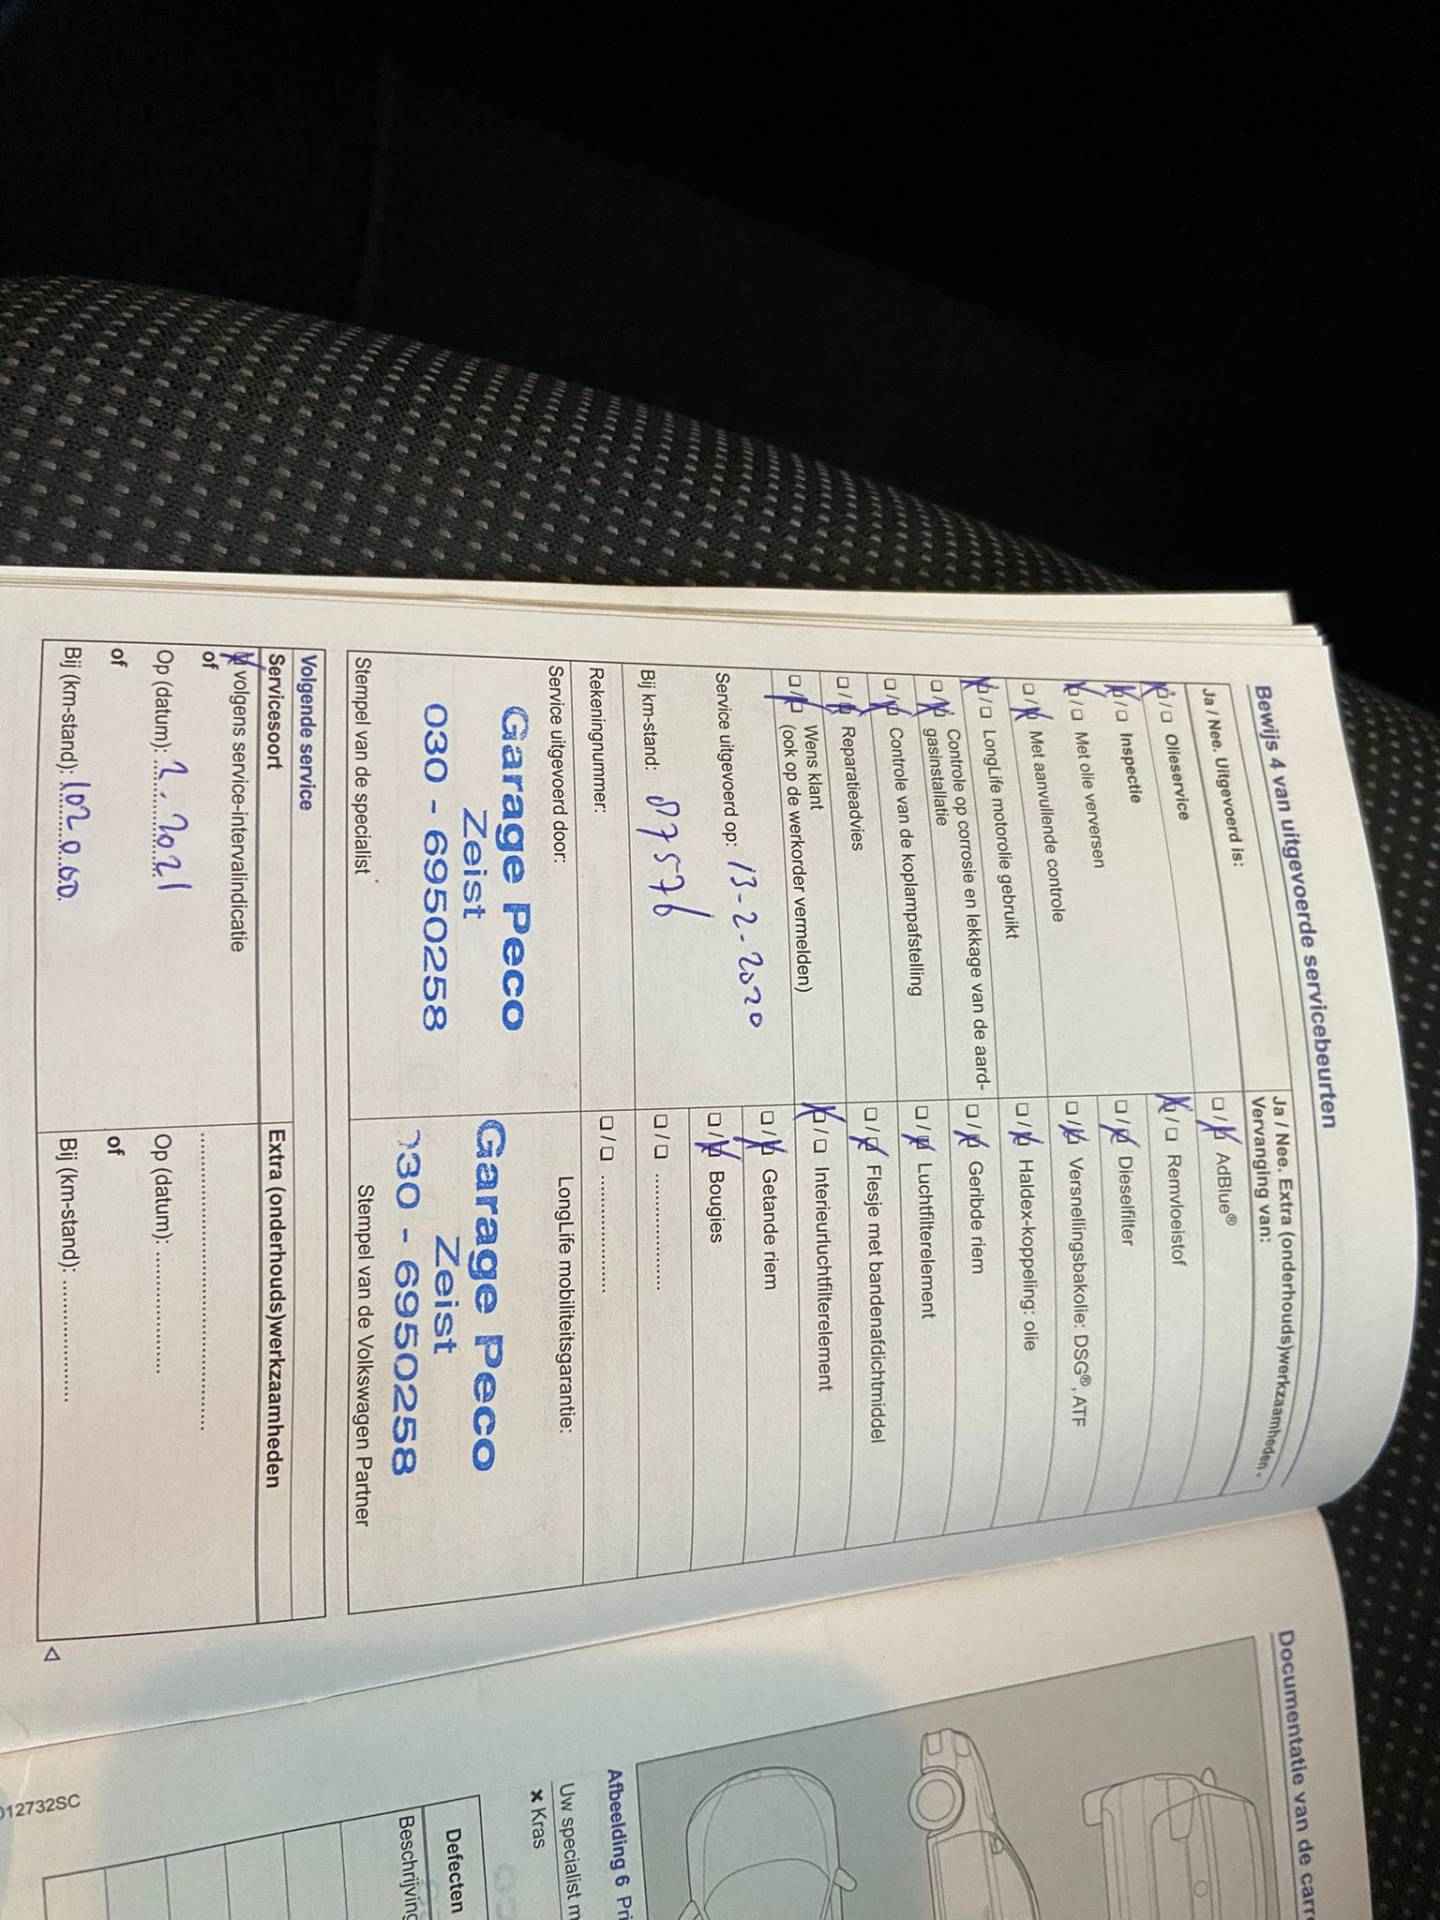 Bewijs 4 van uitgevoerde servicebeurten
Ja / Nee. Uitgevoerd is:
Olieservice
Inspectie
Met olie verversen
Met aanvullende controle
LongLife motorolie gebruikt
Controle op corrosie en lekkage van de aard-
gasinstallatie
Controle van de koplampafstelling
Reparatieadvies
Wens klant
(ook op de werkorder vermelden)
Service uitgevoerd op: 13-2-2020
Bij km-stand: 87576
Rekeningnummer:
Service uitgevoerd door:
Garage Peco
Zeist
030 - 6950258
Stempel van de specialist
Ja / Nee. Extra (onderhouds)werkzaamheden.
Vervanging van:
AdBlue®
Remvloeistof
Dieselfilter
Versnellingsbakolie: DSG®, ATF
Haldex-koppeling: olie
Geribde riem
Luchtfilterelement
Flesje met bandenafdichtmiddel
Interieurluchtfilterelement
Getande riem
Bougies
LongLife mobiliteitsgarantie:
Garage Peco
Zeist
030 - 6950258
Stempel van de Volkswagen Partner
Volgende service
Servicesoort
volgens service-intervalindicatie
of
Op (datum): 2. 2021
of
Bij (km-stand):
Extra (onderhouds)werkzaamheden
Op (datum):
of
Bij (km-stand):
Documentatie van de
Afbeelding 6
Uw specialist
× Kras
Defecten
012732SC